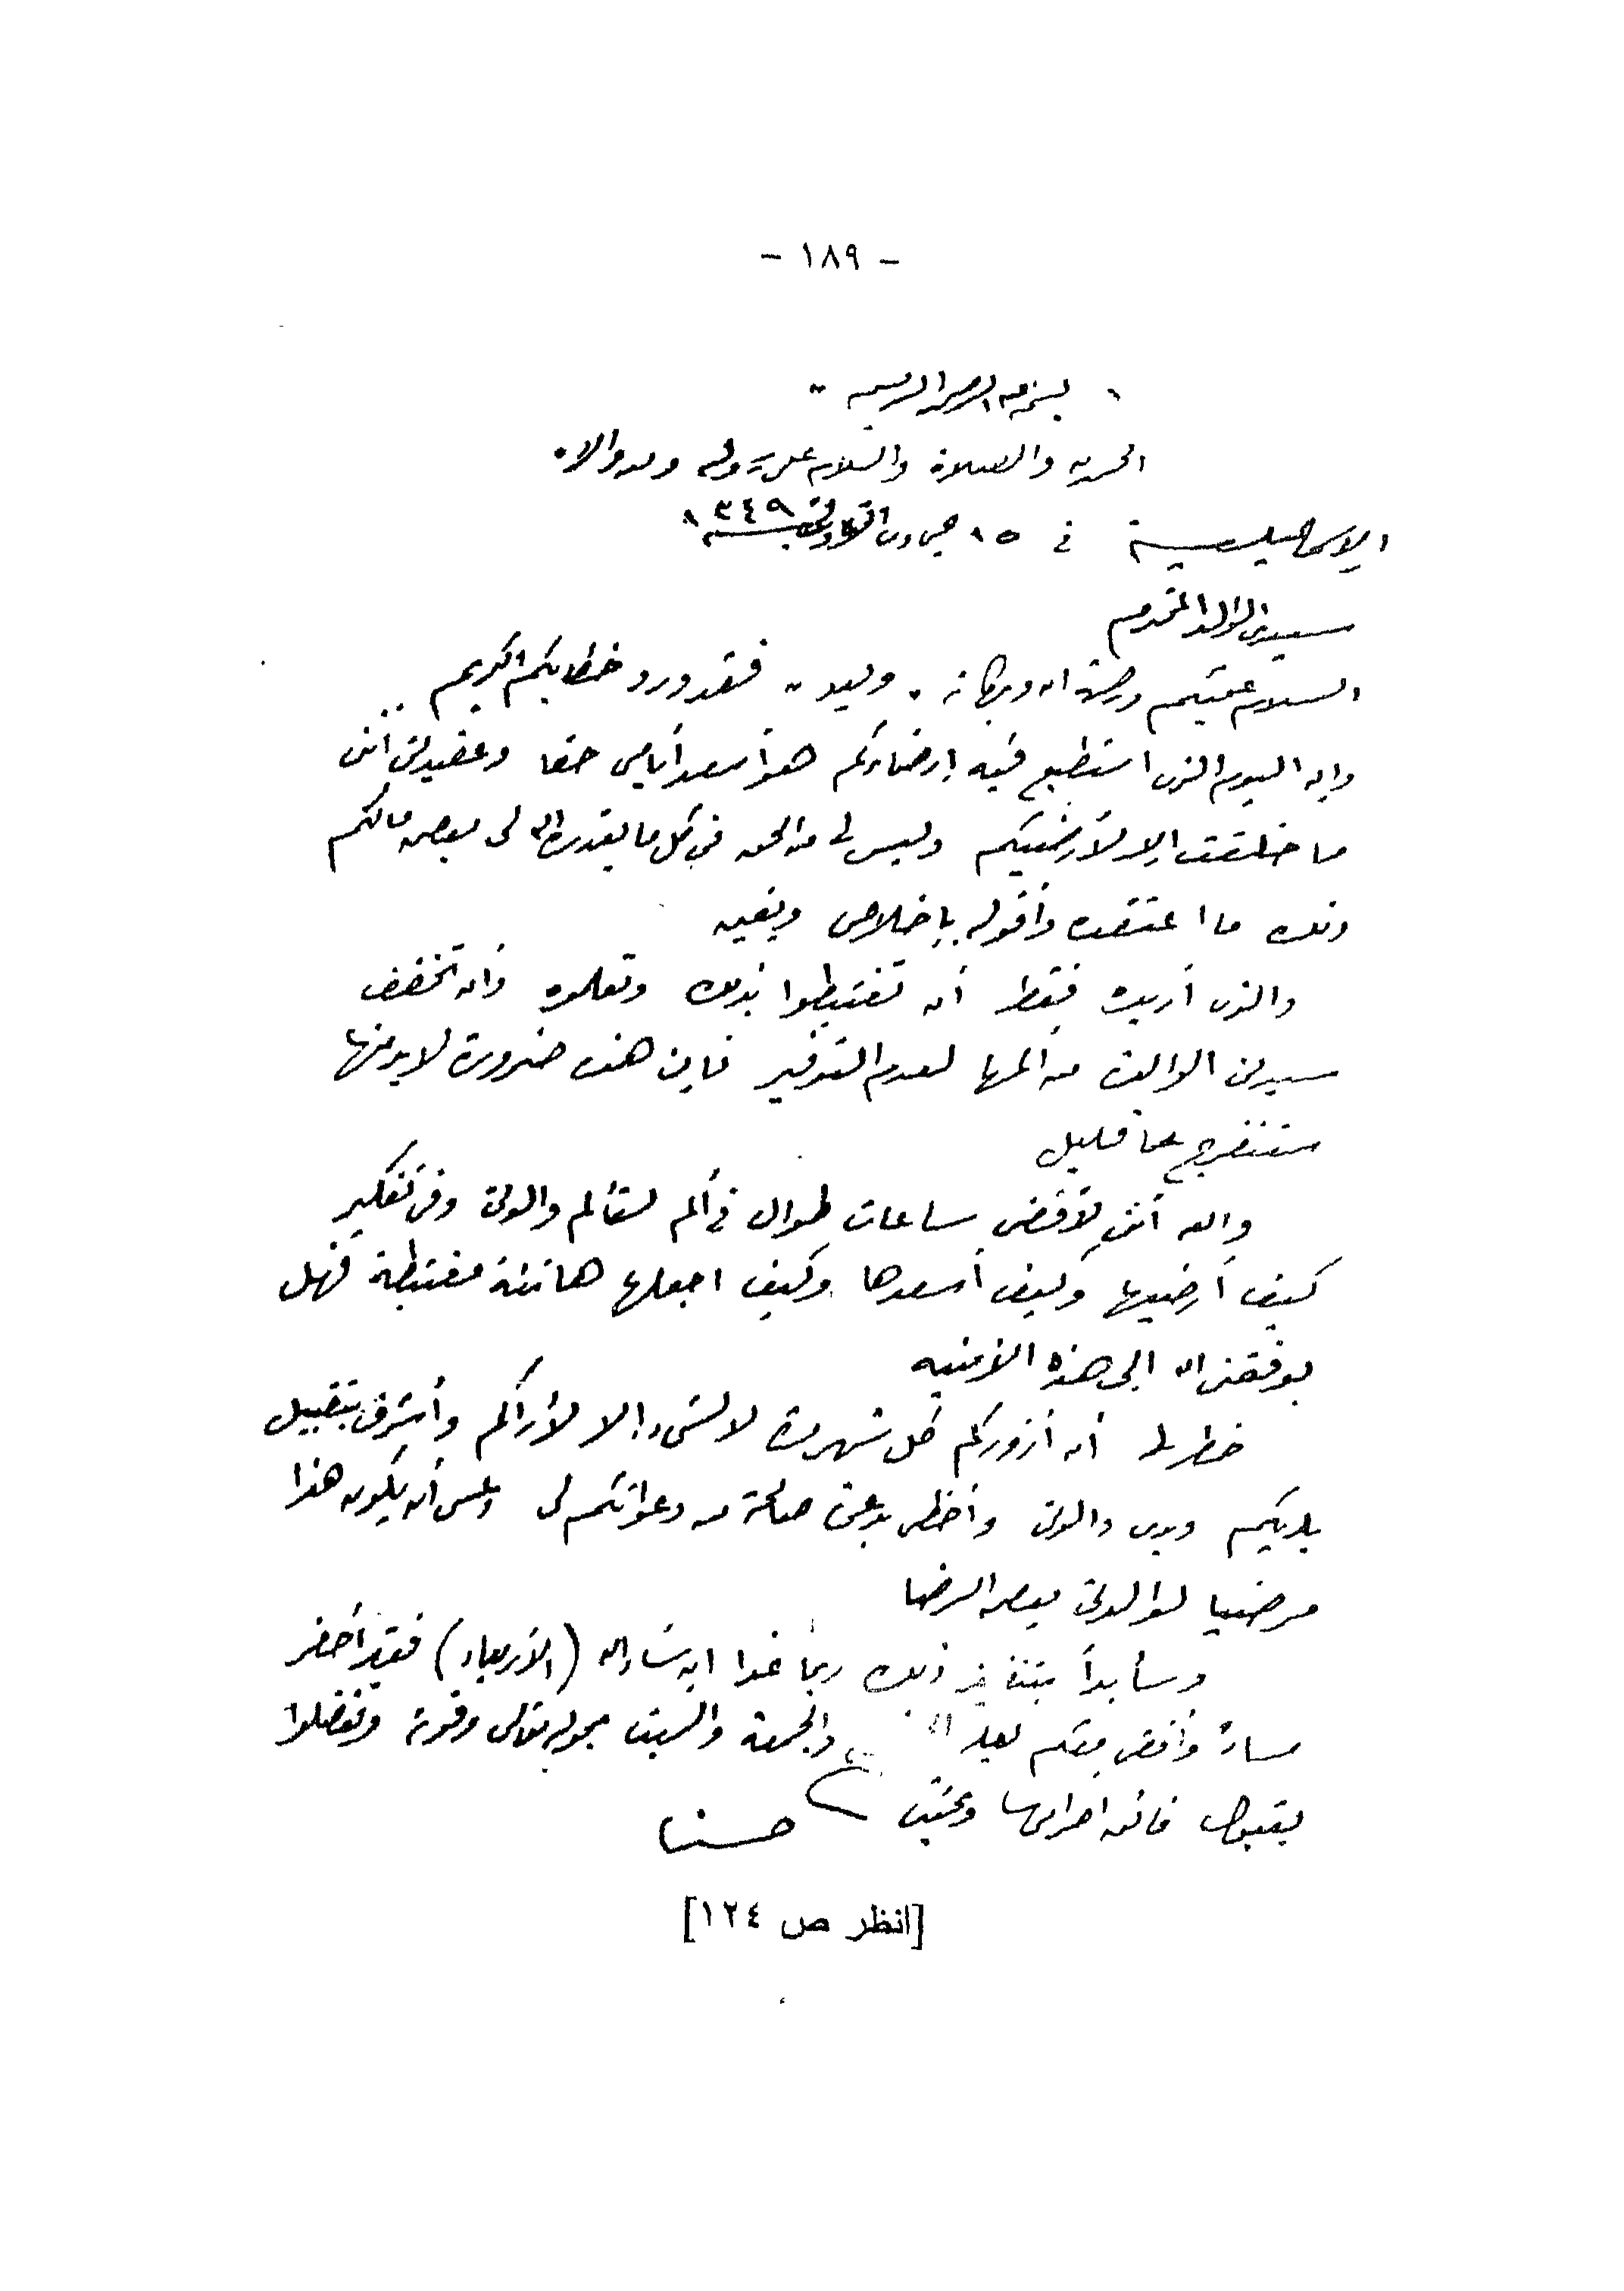 - ١٨٩ -
" بسم الله الرحمن الرحيم "
الحمد لله والصلاة والسلام على رسوله ومن والاه
الإسماعيلية في ١٥ جمادى سنة ١٣٤٩
سيدي الوالد المحترم
السلام عليكم ورحمة الله وبركاته . وبعد .. فقد ورد خطابكم الكريم ..
وإن اليوم الذى استطيع فيه إرضاءكم هو أسعد أيامى حقا وعقيدتى أننى
ما خلقت إلا لأرضيكم وليس لى من الحق فى كل ما يقدره الله لى بعض مالكم
وذلك ما اعتقده وأقوله بإخلاص ويقين
والذى أريده فقط أن تغتبطوا بذلك وتعلموه وأن تخفف
سيدتى الوالدة من ألمها لعدم التوفير فإن هذه ضرورة لابد منها
ستنفرج عما قليل
والله أننى لأقضى ساعات طوال في ألم لتألم والدتى وفى تفكير
كيف أرضيها وكيف أسعدها وكيف اجعلها هانئة مغتبطة فهل
يوفقنى الله إلى هذه الأمنية
خطر لى أن أزوركم كل شهر مرة لا لشىء إلا لأراكم وأتشرف بتقبيل
يديكم ويدى والدتى وأحظى بدعوة صالحة من دعواتكم لى وعسى أن يكون هذا
مرضيا لوالدتى بعض الرضا
وسأبدأ بتنفيذ ذلك ربما غدا إن شاء الله (الأربعاء) فقد أحضر
مساء وأقضى معكم والجمعة والسبت بحول الله تعالى وقوته وتفضلوا
بقبول فائق احترامى وتحيتى
حسن
[انظر ص ١٢٤]